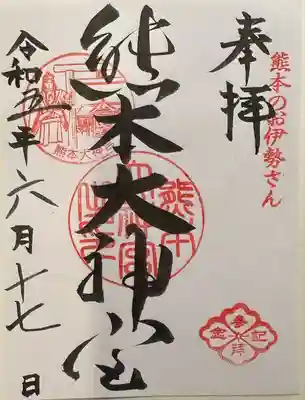 熊本のお伊勢さん
奉拝
熊本大神宮
熊本大神宮
令和五年六月十七日
参拝記念